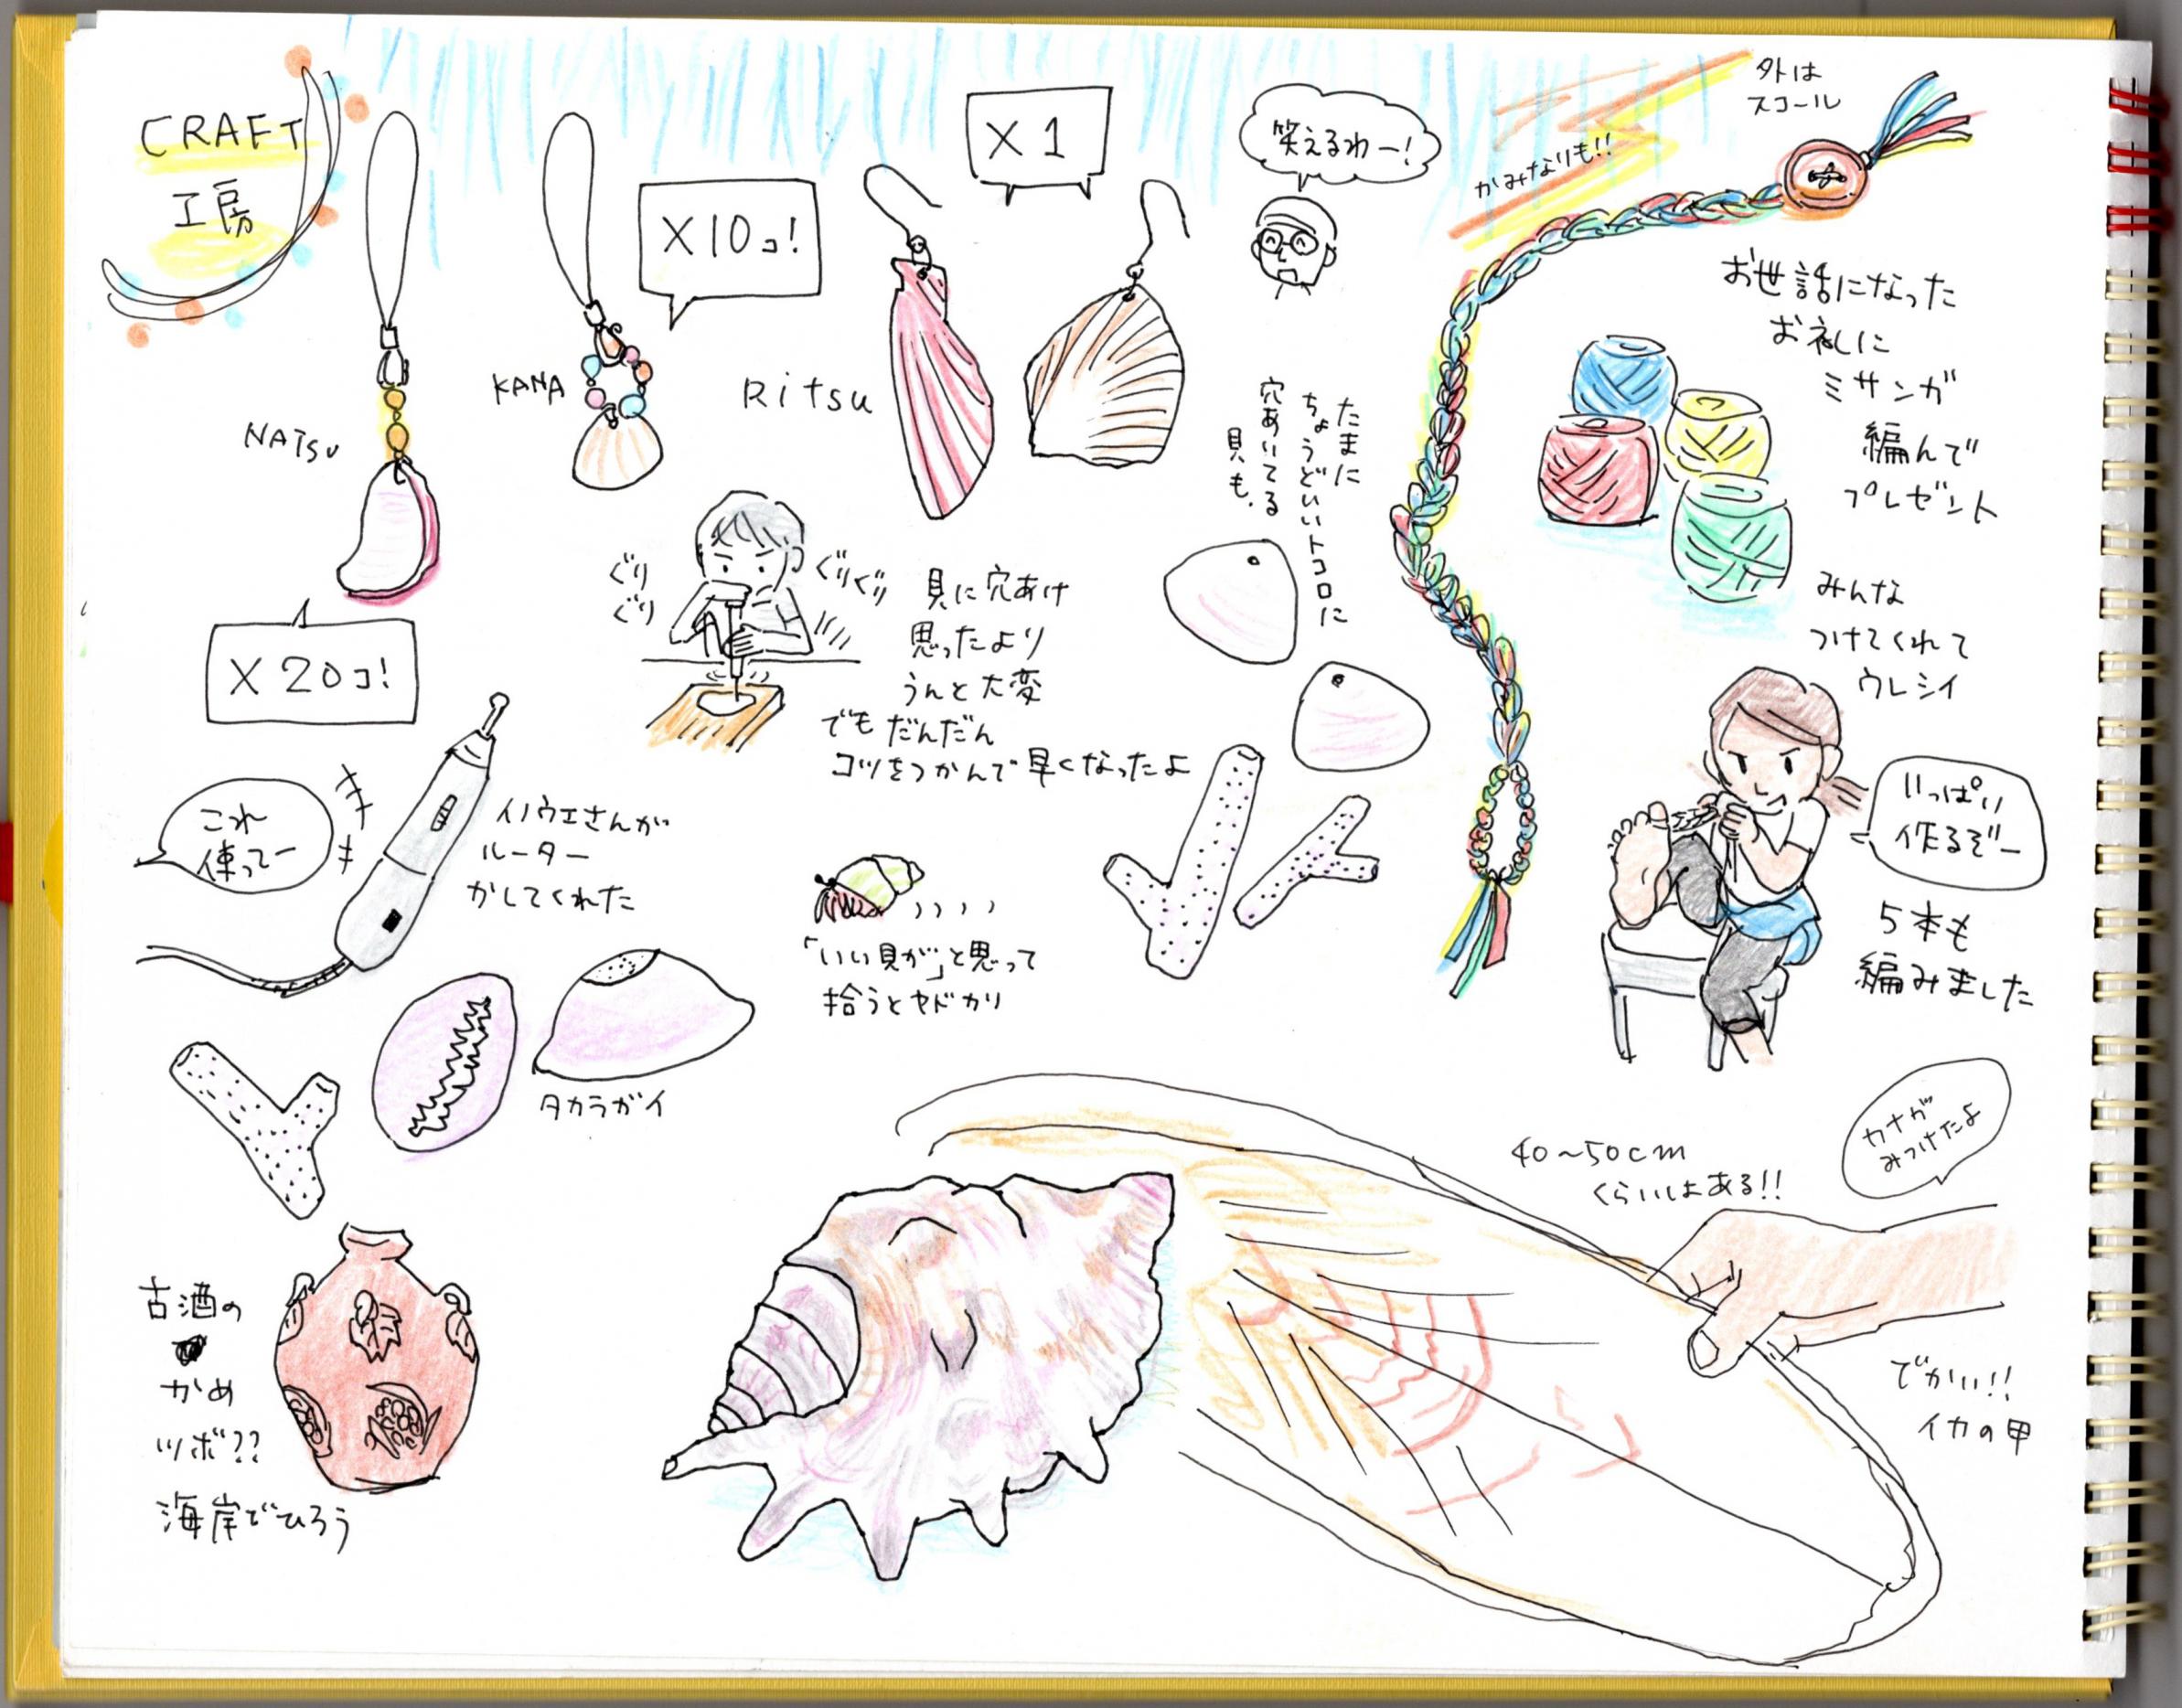 CRAFT
工房
NATSU
X20コ!
KANA
X10コ!
Ritsu
X1
笑えるわー!
外は
スコール
かみなりも!!
お世話になった
お礼に
ミサンガ
編んで
プレゼント
みんな
つけてくれて
ウレシイ
たまに
ちょうどいいトコロに
穴あいてる
貝も.
ぐり
ぐり
ぐりぐり
貝に穴あけ
思ったより
うんと大変
でもだんだん
コツをつかんで早くなったよ
これ
使ってー
イノウエさんが
ルーター
かしてくれた
「いい貝が」と思って
拾うとヤドカリ
いっぱい
作るぞー
5本も
編みました
タカラガイ
古酒の
かめ
ツボ??
海岸でひろう
40~50cm
くらいはある!!
カナが
みつけたよ
でかい!!
イカの甲